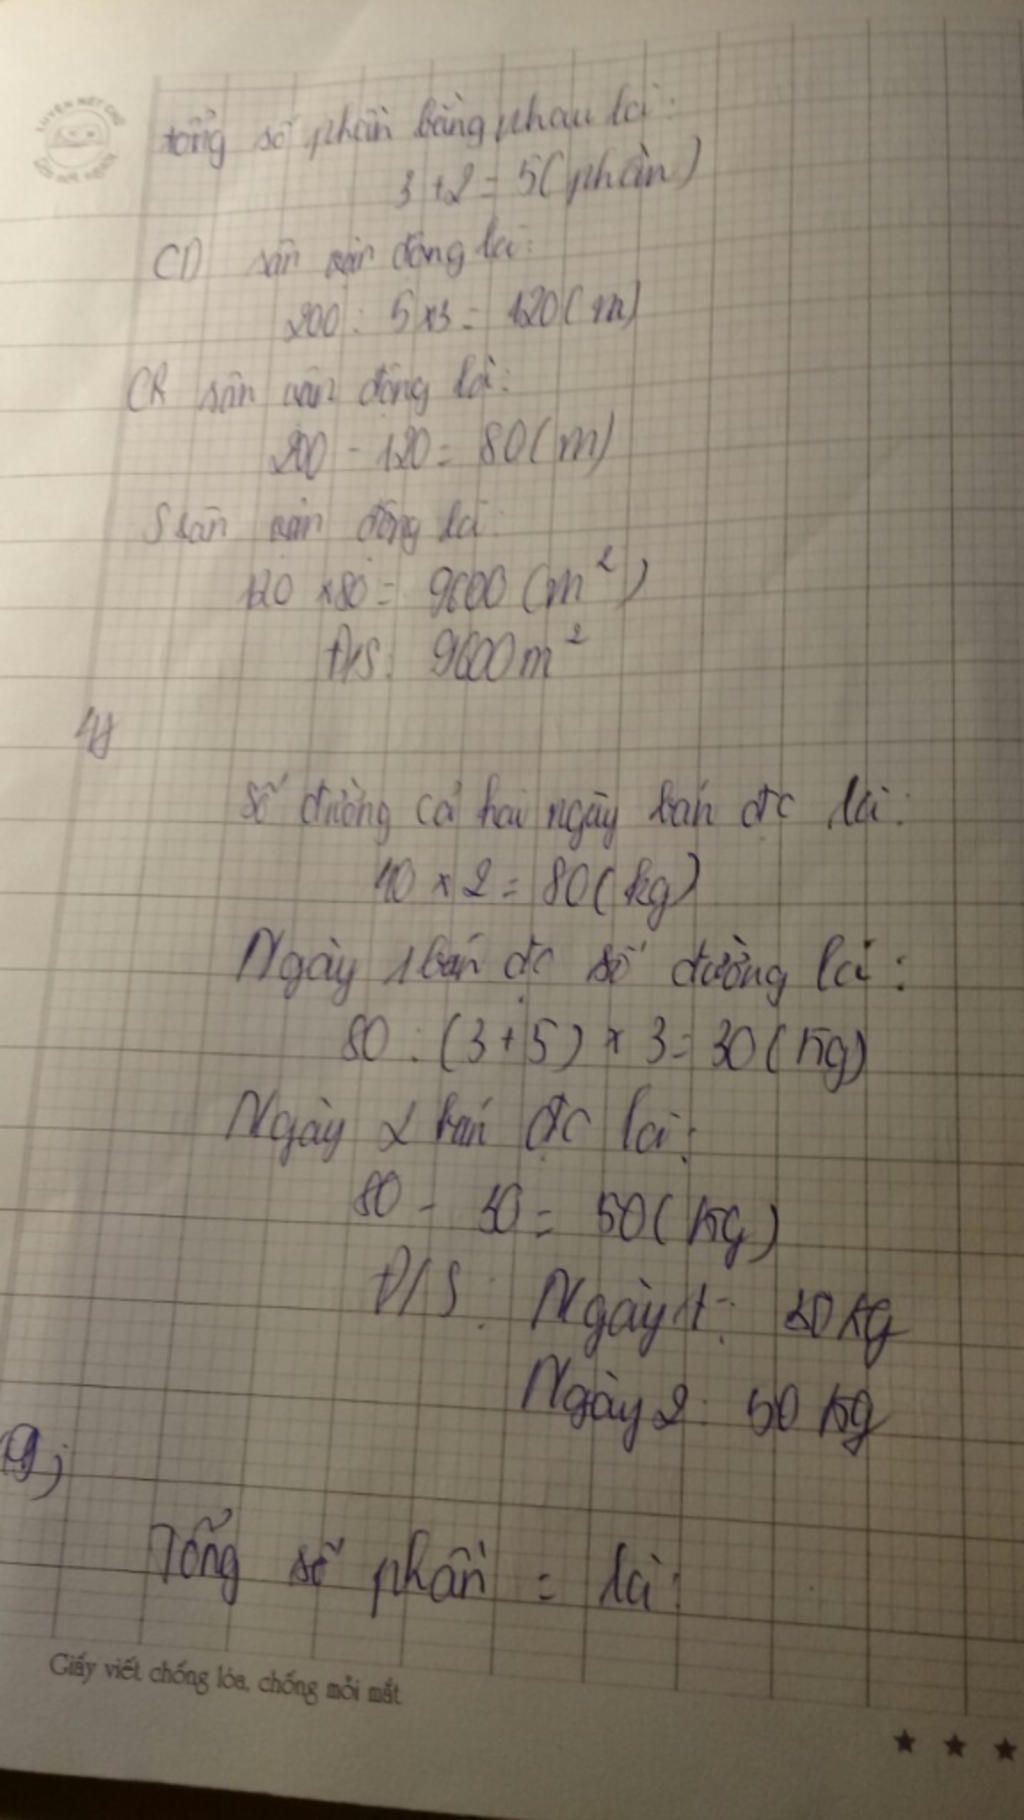 LUYỆN NÉT CHỮ
tổng số phần bằng nhau là:
3 + 2 = 5 (phần)
CD sân vận động là:
200 : 5 x 3 = 120 (m)
CR sân vận động là:
200 - 120 = 80 (m)
S sân vận động là:
120 x 80 = 9600 (m²)
Đ/S: 9600 m²
số đường cả hai ngày bán đc là:
40 x 2 = 80 (kg)
Ngày 1 bán đc số đường là:
80 : (3 + 5) x 3 = 30 (kg)
Ngày 2 bán đc là:
80 - 30 = 50 (kg)
Đ/S: Ngày 1: 30 kg
Ngày 2: 50 kg
Tổng số phần = là:
Giấy viết chống lóa, chống mỏi mắt